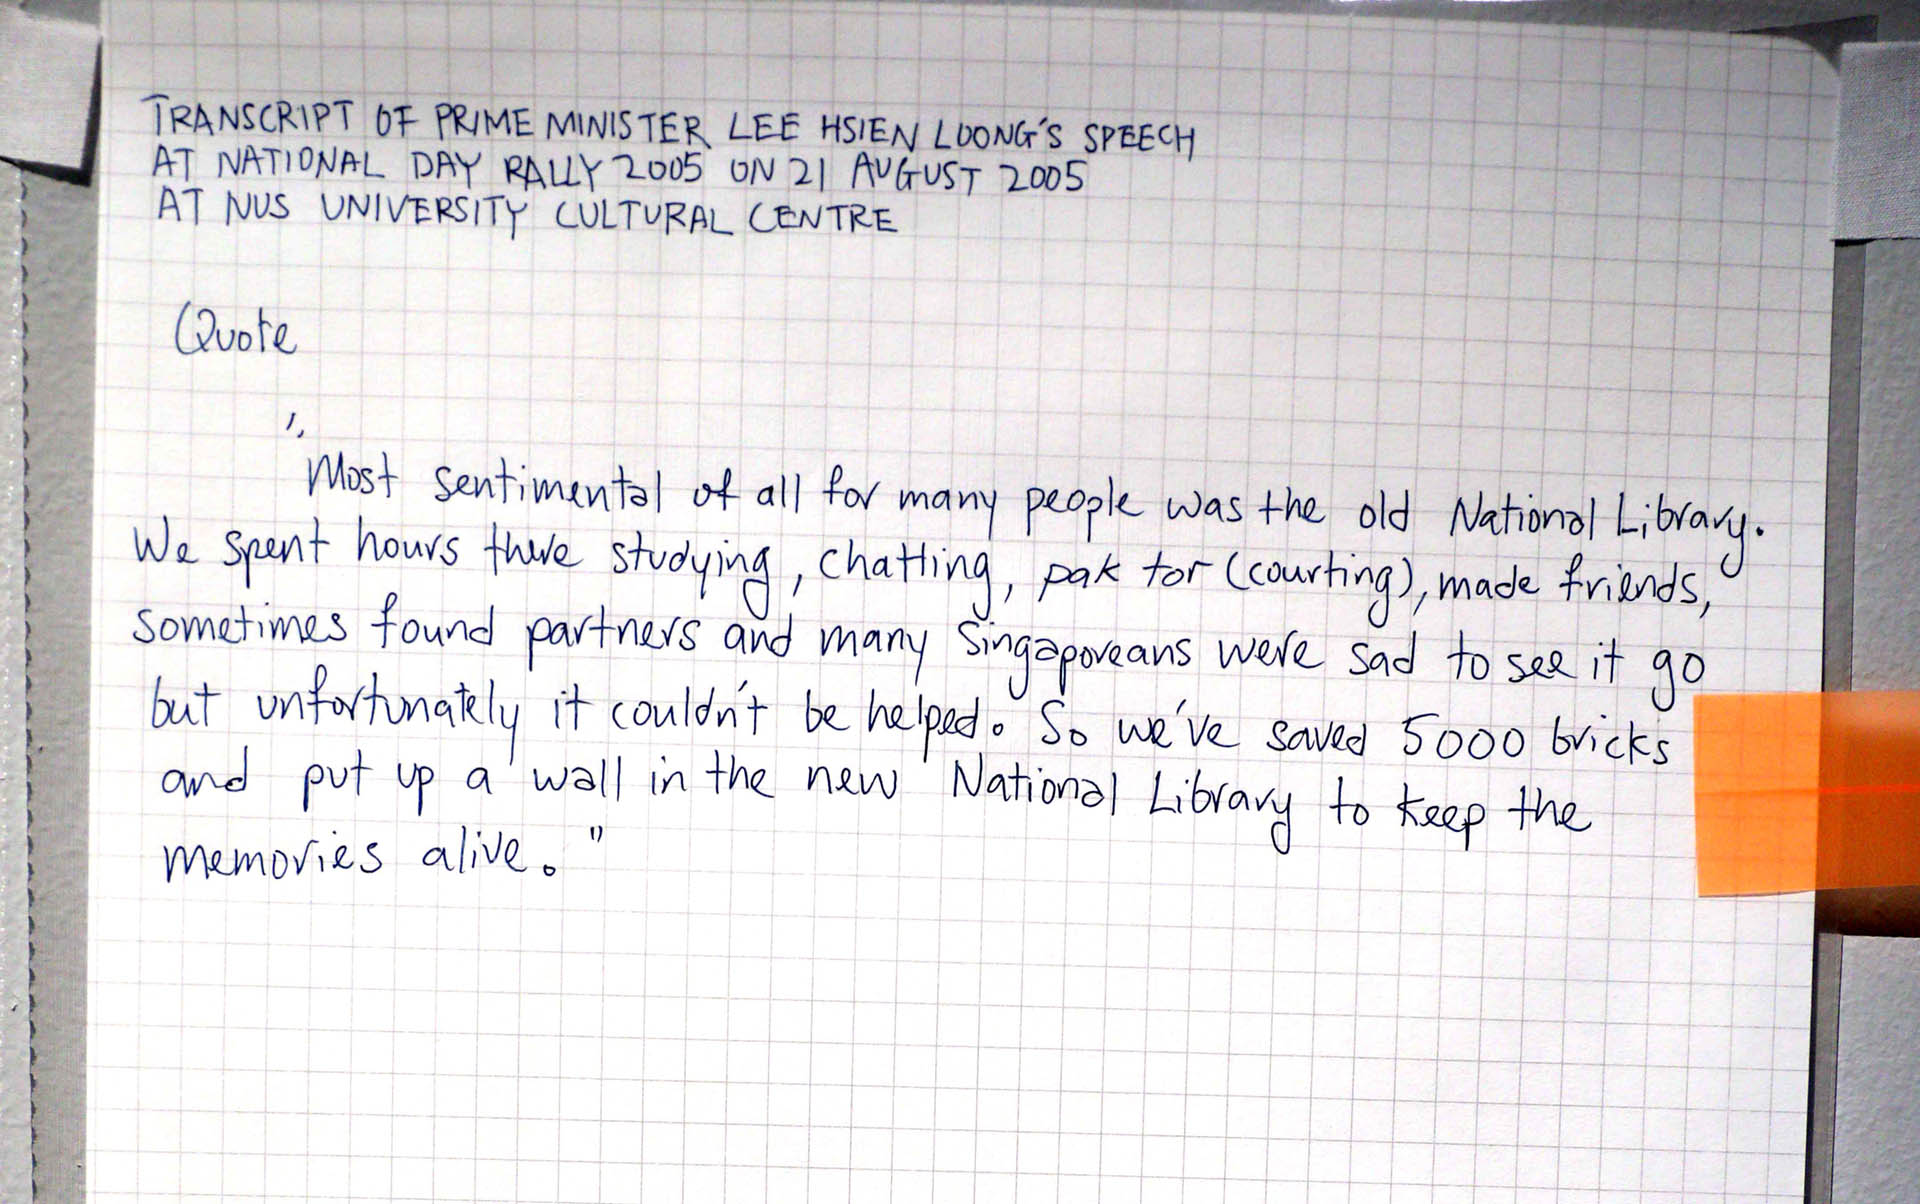 TRANSCRIPT OF PRIME MINISTER LEE HSIEN LOONG'S SPEECH
AT NATIONAL DAY RALLY 2005 ON 21 AUGUST 2005
AT NUS UNIVERSITY CULTURAL CENTRE
Quote
"Most sentimental of all for many people was the old National Library.
We spent hours there studying, chatting, pak tor (courting), made friends,
sometimes found partners and many Singaporeans were sad to see it go
but unfortunately it couldn't be helped. So we've saved 5000 bricks
and put up a wall in the new National Library to keep the
memories alive."